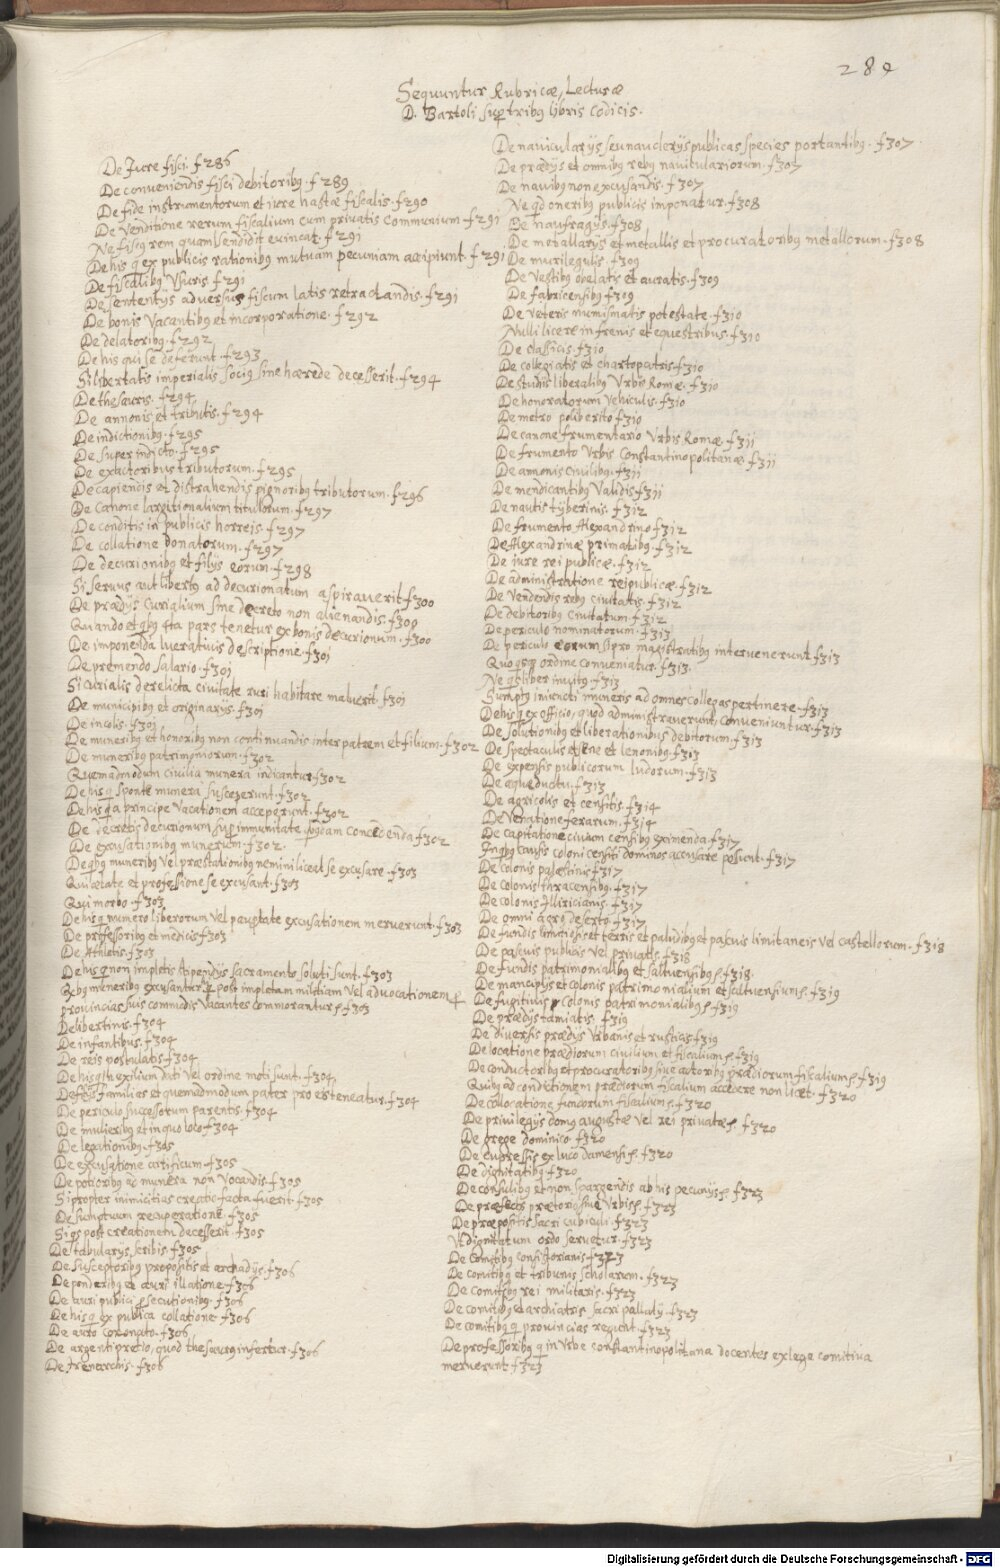 284
Sequuntur Rubricæ Lecturæ
D. Bartoli sup tribq libris Codicis.
De Jure fisci. f 286
De conveniendis fisci debitoribq. f 289
De fide instrumentorum et iure hastæ fiscalis. f 290
De Venditione rerum fiscalium cum privatis communium. f 291
Ne fiscq rem quam vendidit evincat. f 291
De his q ex publicis rationibq mutuam pecuniam accipiunt. f 291
De fiscalibq Usuris. f 291
De sententijs adversus fiscum latis retractandis. f 291
De bonis Vacantibq et incorporatione. f 292
De delatoribq. f 292
De his qui se deferunt. f 293
Si libertatis imperialis sociq sine hærede decesserit. f 294
De thesauris. f 294
De annonis et tributis. f 294
De indictionibq. f 295
De superindicto. f 295
De exactoribus tributorum. f 295
De capiendis et distrahendis pignoribq tributorum. f 296
De Canone largitionalium titulorum. f 297
De conditis in publicis horreis. f 297
De collatione donatorum. f 297
De decurionibq et filijs eorum. f 298
Si servus aut libertq ad decurionatum aspiraverit f 300
De prædijs Curialium sine decreto non alienandis. f 300
Quando et qbq 4ta pars tenetur ex bonis decurionum. f 300
De imponenda lucrativis descriptione. f 301
De premendo Salario. f 301
Si curialis derelicta civitate ruri habitare maluerit f 301
De municipibq et originarijs. f 301
De incolis. f 301
De muneribq et honoribq non continuandis inter patrem et filium. f 302
De muneribq patrimoniorum. f 302
Quemadmodum civilia munera indicantur f 302
De his q sponte munera susceperunt. f 302
De his q a principe vacationem acceperunt. f 302
De decretis decurionum sup immunitate qbqdam concedenda f 302
De excusationibq munerum. f 302.
De qbq muneribq vel præstationibq nemini liceat se excusare. f 303
Qui ætate et professione se excusant. f 303
Qui morbo. f 303
De his q numero liberorum vel pauptate excusationem meruerunt. f 303
De professoribq et medicis f 303
De Athletis. f 303
De his q non impletis stipendijs sacramento soluti sunt. f 303
Qbq muneribq excusantur q post impletam militiam vel advocationem p
provincias suis commodis vacantes commorantur. f 303
De libertinis. f 304
De infantibus. f 304
De reis postulatis f 304
De his q in exilium dati vel ordine moti sunt. f 304
De filijs familias et quemadmodum pater pro eis teneatur. f 304
De periculo successorum parentis. f 304
De mulieribq et in quo loco f 304
De legationibq. f 305
De excusatione artificum. f 305
De potioribq ad munera non vocandis. f 305
Si propter inimicitias creatio facta fuerit. f 305
De sumptuum recuperatione. f 305
Si qs post creationem decesserit. f 305
De tabularijs, scribis. f 305
De Susceptoribq propositis et archadijs. f 306
De ponderibq et auri illatione f 306
De auri publici psecutionibq. f 306
De his q ex publica collatione. f 306
De auro coronato. f 306
De argenti pretio, quod thesauris infertur. f 306
De Irenarchis. f 306
De navicularijs seu nauclerijs publicas species portantibq. f 307.
De prædijs et omnibq rebq navitulariorum. f 307
De navibq non excusandis. f 307
Ne qd oneribq publicis imponatur. f 308
De naufragijs. f 308
De metallarijs et metallis et procuratoribq metallorum. f 308
De murilegulis. f 309
De Vestibq obelatis et auratis. f 309
De fabricensibq f 309
De Veteris numismatis potestate. f 310
Nulli licere in frenis et equestribus. f 310
De classicis. f 310
De collegiatis et chartopatris. f 310
De studijs liberalibq Urbis Romæ. f 310
De honoratorum Vehiculis. f 310
De metro poliberito f 310
De canone frumentario Urbis Romæ. f 311
De frumento Urbis Constantinopolitanæ. f 311
De annonis civilibq. f 311
De mendicantibq Validis f 311
De nautis tyberinis. f 312
De frumento Alexandrino f 312
De Alexandrinæ primatibq. f 312
De iure rei publicæ. f 312
De administratione reipublicæ. f 312
De Vendendis rebq civitatis. f 312
De debitoribq civitatum. f 312
De periculo nominatorum. f 313
De periculo eorum q pro magistratibq intervenerunt f 313
Quo qsq ordine conveniatur. f 313.
Ne qs liber invitq. f 313
Sumptq iniuncti muneris ad omnes collegas pertinere. f 313
De his q ex officio, quod administraverunt, conveniuntur. f 313
De solutionibq et liberationibus debitorum. f 313
De Spectaculis et scene et lenonibq. f 313
De expensis publicorum ludorum. f 313
De æqueductu. f 313
De agricolis et censitis. f 314
De Venatione ferarum. f 314
De capitatione civium censibq eximenda. f 317
In qbq causis coloni censiti dominos accusare possunt. f 317
De colonis palæstinis f 317
De colonis thracensibq. f 317
De colonis Illiricianis. f 317
De omni agro deserto. f 317
De fundis limitrofis et terris et paludibq et pascuis limitaneis vel castellorum. f 318
De pascuis publicis vel privatis f 318
De fundis patrimonialibq et saltuensibq. f 318.
De mancipijs et colonis patrimonialium et saltuensium. f 319
De fugitivis colonis patrimonialibq. f 319
De prædijs tamiatis. f 319
De diversis prædijs Urbanis et rusticis f 319
De locatione prædiorum civilium et fiscalium. f 319
De conductoribq et procuratoribq sive actoribq prædiorum fiscalium. f 319
Quibq ad conductionem prædiorum fiscalium accedere non licet. f 320
De collocatione fundorum fiscalium. f 320
De privilegijs domq augustæ vel rei privatæ. f 320
De grege dominico. f 320
De cupressis ex luco damensi. f 320
De dignitatibq f 320
De consulibq et non spargendis ab his pecunijs. f 323
De præfectis prætorio sive Urbis. f 323
De præpositis sacri cubiculi. f 323
Ut dignitatum ordo servetur. f 323
De Comitibq consistorianis f 323
De comitibq et tribunis scholarum. f 323
De comitibq rei militaris. f 323
De comitibq et archiatris sacri pallatij. f 323
De comitibq q provincias regunt. f 323
De professoribq q in Urbe constantinopolitana docentes ex lege comitiva
meruerunt f 323
Digitalisierung gefördert durch die Deutsche Forschungsgemeinschaft - DFG